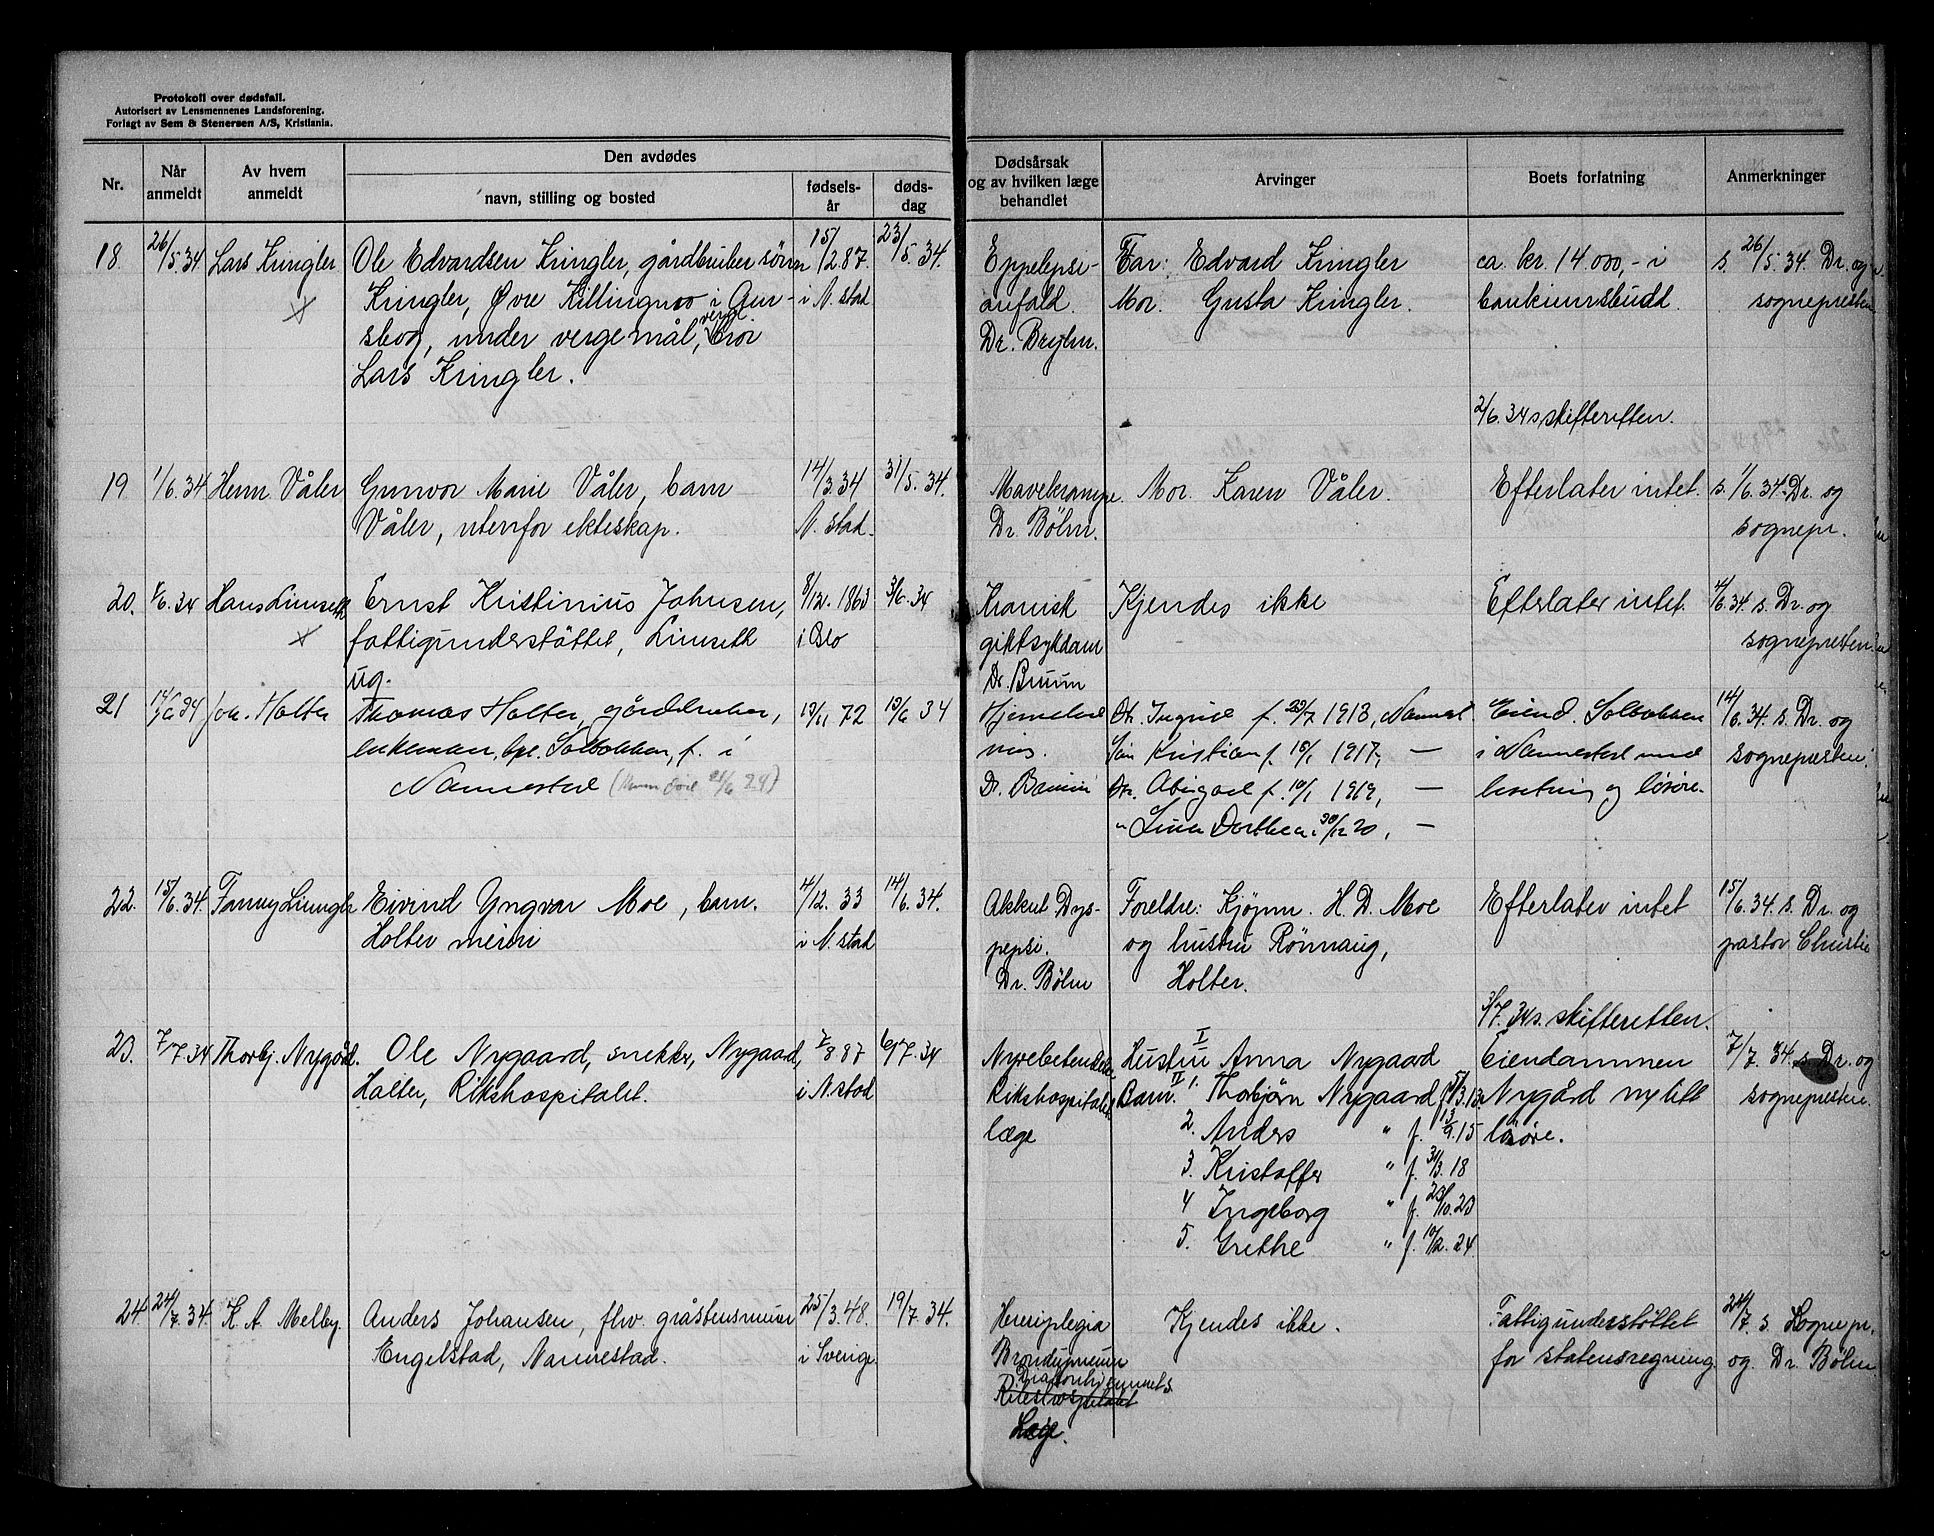 Protokoll over dødsfall.
Autorisert av Lensmennenes Landsforening.
Forlagt av Sem & Stenersen A/S, Kristiania.
Nr.
Når anmeldt
Av hvem anmeldt
Den avdødes
navn, stilling og bosted
fødselsår
dødsdag
Dødsårsak og av hvilken læge behandlet
Arvinger
Boets forfatning
Anmerkninger
18. 26/5.34 Lars Kringler Ole Edvardsen Kringler, gårdbruker sønn 15/12.87. 23/5.34. Eppelepsi- Far: Edvard Kringler ca. kr. 14.000,- i s. 26/5.34. Dr. og
Kringler, Øvre Killingmo i Aur- i N.stad anfald. Mor. Gusta Kringler. bankinnskudd. sognepresten
skog, under vergemål, verge bror Dr. Bryhn.
Lars Kringler.
2/6.34 s skifteretten.
19. 1/6.34 Herm. Våler Gunvor Marie Våler, barn 14/3.34 31/5.34. Mavekrampe Mor. Karen Våler. Efterlater intet. s. 1/6.34. Dr. og
Våler, utenfor ekteskap. N.stad. Dr. Bøhn. sognepr.
20. 4/6.34 Hans Limseth Ernst Kristinius Johnsen, 8/12.1863 3/6.34 Kronisk Kjendes ikke Efterlater intet. 4/6.34. s. Dr. og
fattigunderstøttet, Limseth i Oslo giktsykdom sognepresten.
ug. Dr. Bruun
21 14/6 34 Joh. Holter Thomas Holter, gårdbruker, 19/11 72 13/6 34 Dtr. Ingrid f. 23/7 1913, Nannest. Eiend. Solbakken 14/6.34. s. Dr. og
enkeman, Solbakken, f. i Søn Kristian f. 10/1 1917, — i Nannestad med sognepresten.
Nannestad Dr. Dtr. Abigael f. 10/1 1919, — besetning og løsøre.
" Dorthea 30/12 20, —
22. 15/6.34. Fanny Ljungle Eivind Yngvar Moe, barn. 4/12.33 14/6.34. Akkut Dys- Foreldre: Kjøpm. H. D. Moe Efterlater intet 15/6.34. s. Dr. og
Holter meieri i N.stad pepsi. og hustru Rønnaug, pastor Christie
Dr. Bøhn Holter.
3/7.34 s. skifteretten.
23. 7/7.34 Thorbj. Nygård. Ole Nygaard, snekker, Nygaard, 8 87 6/7.34 Nyrebetendelse I Hustru Anna Nygaard Eiendommen 7/7.34. s. Dr. og
Holter, Rikshospitalet. i N.stad Rikshospitalets Barn. II 1. Thorbjørn Nygaard f. 5/3.13. Nygård m/litt sognepresten.
læge 2. Anders " f. 13/9.15 løsøre.
3. Kristoffer " f. 31/3.18
4 Ingeborg " f. 23/10.23
5. Grethe " f. 10/2.24
24. 24/7.34. K. A. Melby. Anders Johansen, fhv. gråstensmurer 25/3.48. 19/7.34. Hemiplegia Kjendes ikke. Fattigunderstøttet 24/7. s. Sognepr.
Engelstad, Nannestad. i Sverige. for statensregning. og Dr. Bøhn
Læge.